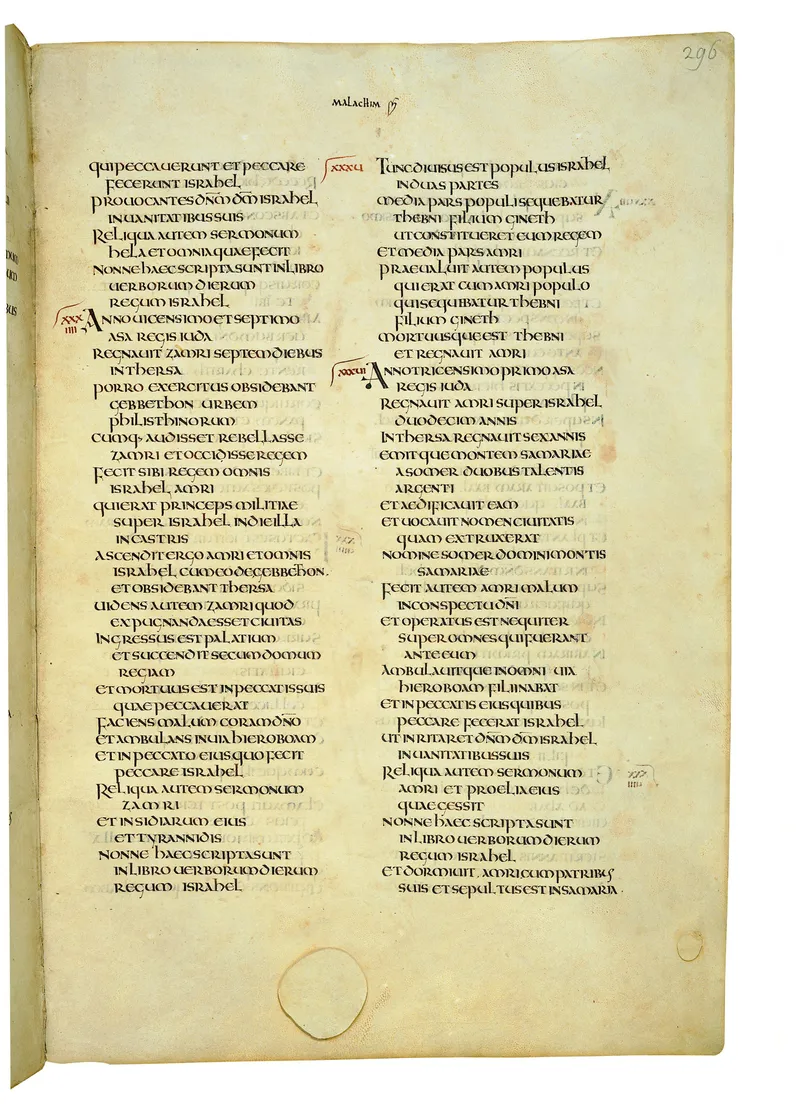 296
MALACHIM
QUI PECCAUERUNT ET PECCARE
FECERUNT ISRAHEL
PROUOCANTES DN̄M DM̄ ISRAHEL
IN UANITATIBUS SUIS
RELIQUA AUTEM SERMONUM
HELA ET OMNIA QUAE FECIT
NONNE HAEC SCRIPTA SUNT IN LIBRO
UERBORUM DIERUM
REGUM ISRAHEL
XXXIIII ANNO UICENSIMO ET SEPTIMO
ASA REGIS IUDA
REGNAUIT ZAMRI SEPTEM DIEBUS
IN THERSA
PORRO EXERCITUS OBSIDEBANT
GEBBETHON URBEM
PHILISTHINORUM
CUMQ· AUDISSET REBELLASSE
ZAMRI ET OCCIDISSE REGEM
FECIT SIBI REGEM OMNIS
ISRAHEL AMRI
QUI ERAT PRINCEPS MILITIAE
SUPER ISRAHEL IN DIE ILLA
IN CASTRIS
ASCENDIT ERGO AMRI ET OMNIS
ISRAHEL CUM EO DE GEBBETHON·
ET OBSIDEBANT THERSA
UIDENS AUTEM ZAMRI QUOD
EXPUGNANDA ESSET CIUITAS
INGRESSUS EST PALATIUM
ET SUCCENDIT SE CUM DOMUM
REGIAM
ET MORTUUS EST IN PECCATIS SUIS
QUAE PECCAUERAT
FACIENS MALUM CORAM DN̄O
ET AMBULANS IN UIA HIEROBOAM
ET IN PECCATO EIUS QUO FECIT
PECCARE ISRAHEL
RELIQUA AUTEM SERMONUM
ZAMRI
ET INSIDIARUM EIUS
ET TYRANNIDIS
NONNE HAEC SCRIPTA SUNT
IN LIBRO UERBORUM DIERUM
REGUM ISRAHEL
XXXU TUNC DIUISUS EST POPULUS ISRAHEL
IN DUAS PARTES
MEDIA PARS POPULI SEQUEBATUR
THEBNI FILIUM GINETH
UT CONSTITUERET EUM REGEM
ET MEDIA PARS AMRI
PRAEUALUIT AUTEM POPULUS
QUI ERAT CUM AMRI POPULO
QUI SEQUIBATUR THEBNI
FILIUM GINETH
MORTUUSQUE EST THEBNI
ET REGNAUIT AMRI
XXXUI ANNO TRICENSIMO PRIMO ASA
REGIS IUDA
REGNAUIT AMRI SUPER ISRAHEL
DUODECIM ANNIS
IN THERSA REGNAUIT SEX ANNIS
EMITQUE MONTEM SAMARIAE
A SOMER DUOBUS TALENTIS
ARGENTI
ET AEDIFICAUIT EAM
ET UOCAUIT NOMEN CIUITATIS
QUAM EXTRUXERAT
NOMINE SOMER DOMINI MONTIS
SAMARIAE
FECIT AUTEM AMRI MALUM
IN CONSPECTU DN̄I
ET OPERATUS EST NEQUITER
SUPER OMNES QUI FUERANT
ANTE EUM
AMBULAUITQUE IN OMNI UIA
HIEROBOAM FILII NABAT
ET IN PECCATIS EIUS QUIBUS
PECCARE FECERAT ISRAHEL
UT INRITARET DN̄M DM̄ ISRAHEL
IN UANITATIBUS SUIS
RELIQUA AUTEM SERMONUM
AMRI ET PROELIA EIUS
QUAE GESSIT
NONNE HAEC SCRIPTA SUNT
IN LIBRO UERBORUM DIERUM
REGUM ISRAHEL
ET DORMIUIT AMRI CUM PATRIBUS
SUIS ET SEPULTUS EST IN SAMARIA·